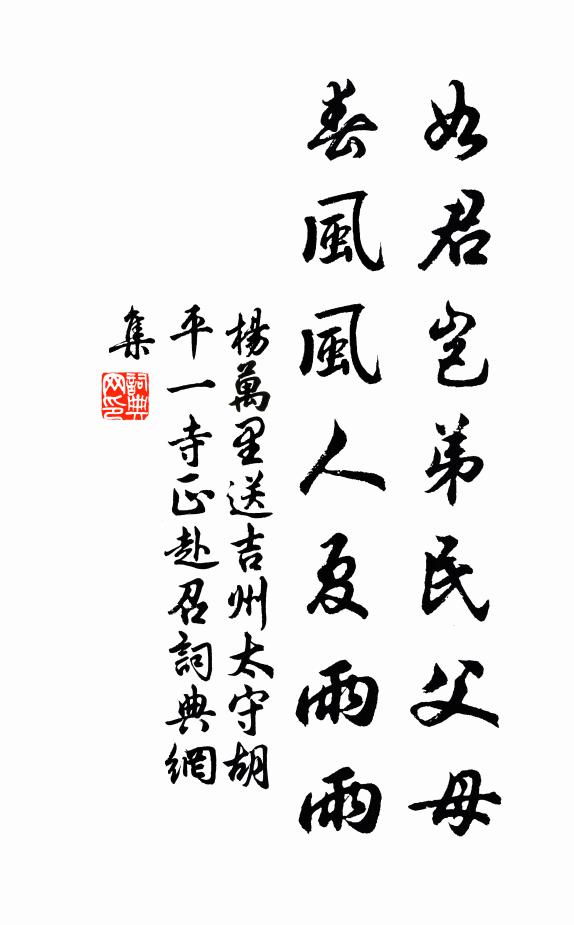 如君岂弟民父母
春風風人夏雨雨
楊萬里送吉州太守胡
平一寺正赴召詞典網
集
詞典網印